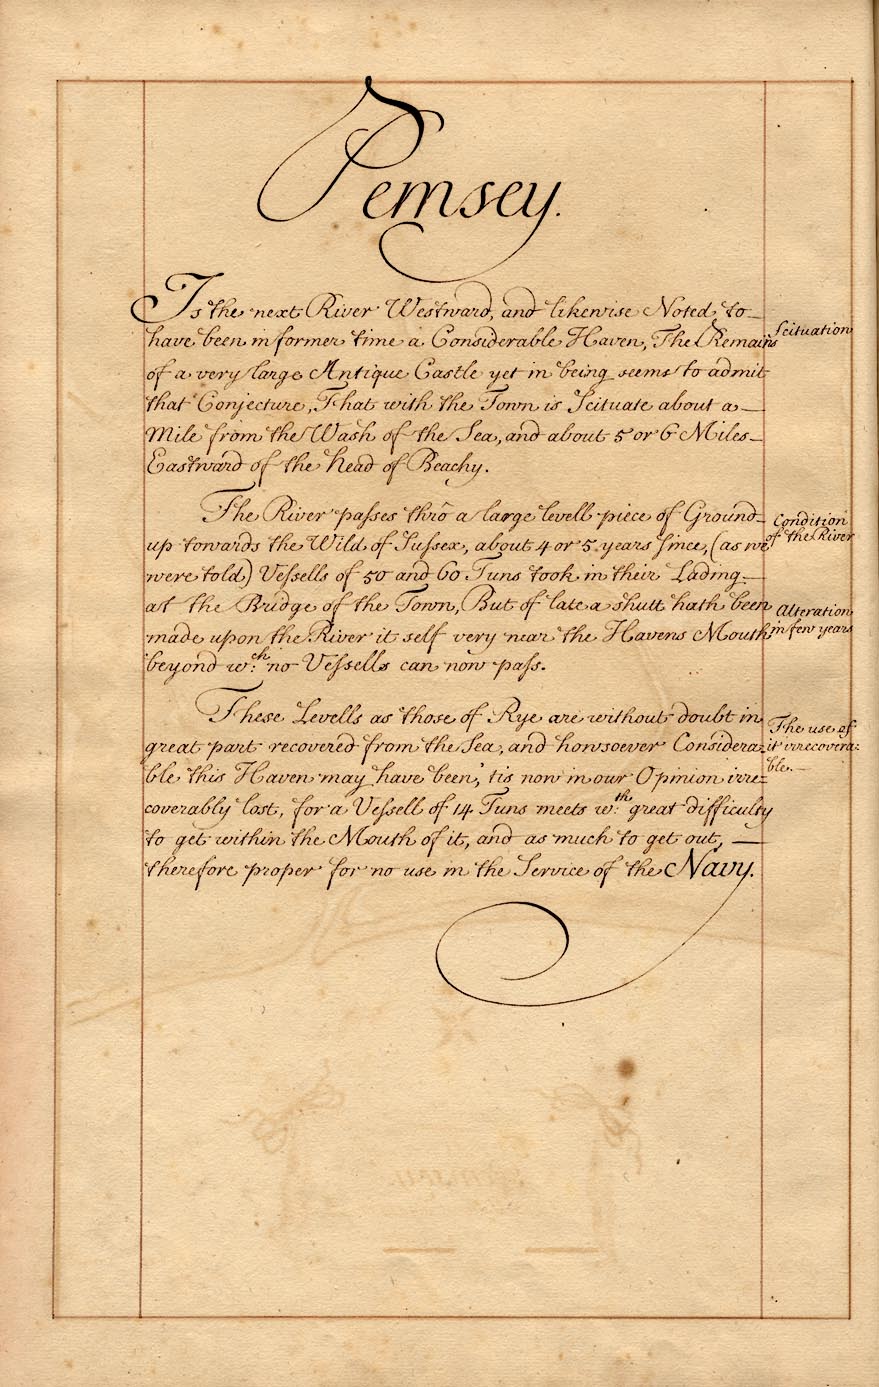 Pemsey.
Is the next River Westward, and likewise Noted to
have been in former time a Considerable Haven, The Remains
of a very large Antique Castle yet in being seems to admit
that Conjecture, That with the Town is Scituate about a
Mile from the Wash of the Sea, and about 5 or 6 Miles
Eastward of the head of Beachy.
Scituation
The River passes thrô a large levell piece of Ground
up towards the Wild of Sussex, about 4 or 5 years since, (as we
were told) Vessells of 50 and 60 Tuns took in their Lading
at the Bridge of the Town, But of late a shutt hath been
made upon the River it self very near the Havens Mouth,
beyond w.ch no Vessells can now pass.
Condition
of the River
Alteration
in few years
These Levells as those of Rye are without doubt in
great part recovered from the Sea, and howsoever Considera=
ble this Haven may have been, 'tis now in our Opinion irre=
coverably lost, for a Vessell of 14 Tuns meets w.th great difficulty
to get within the Mouth of it, and as much to get out,
therefore proper for no use in the Service of the Navy.
The use of
it irrecovera=
ble.